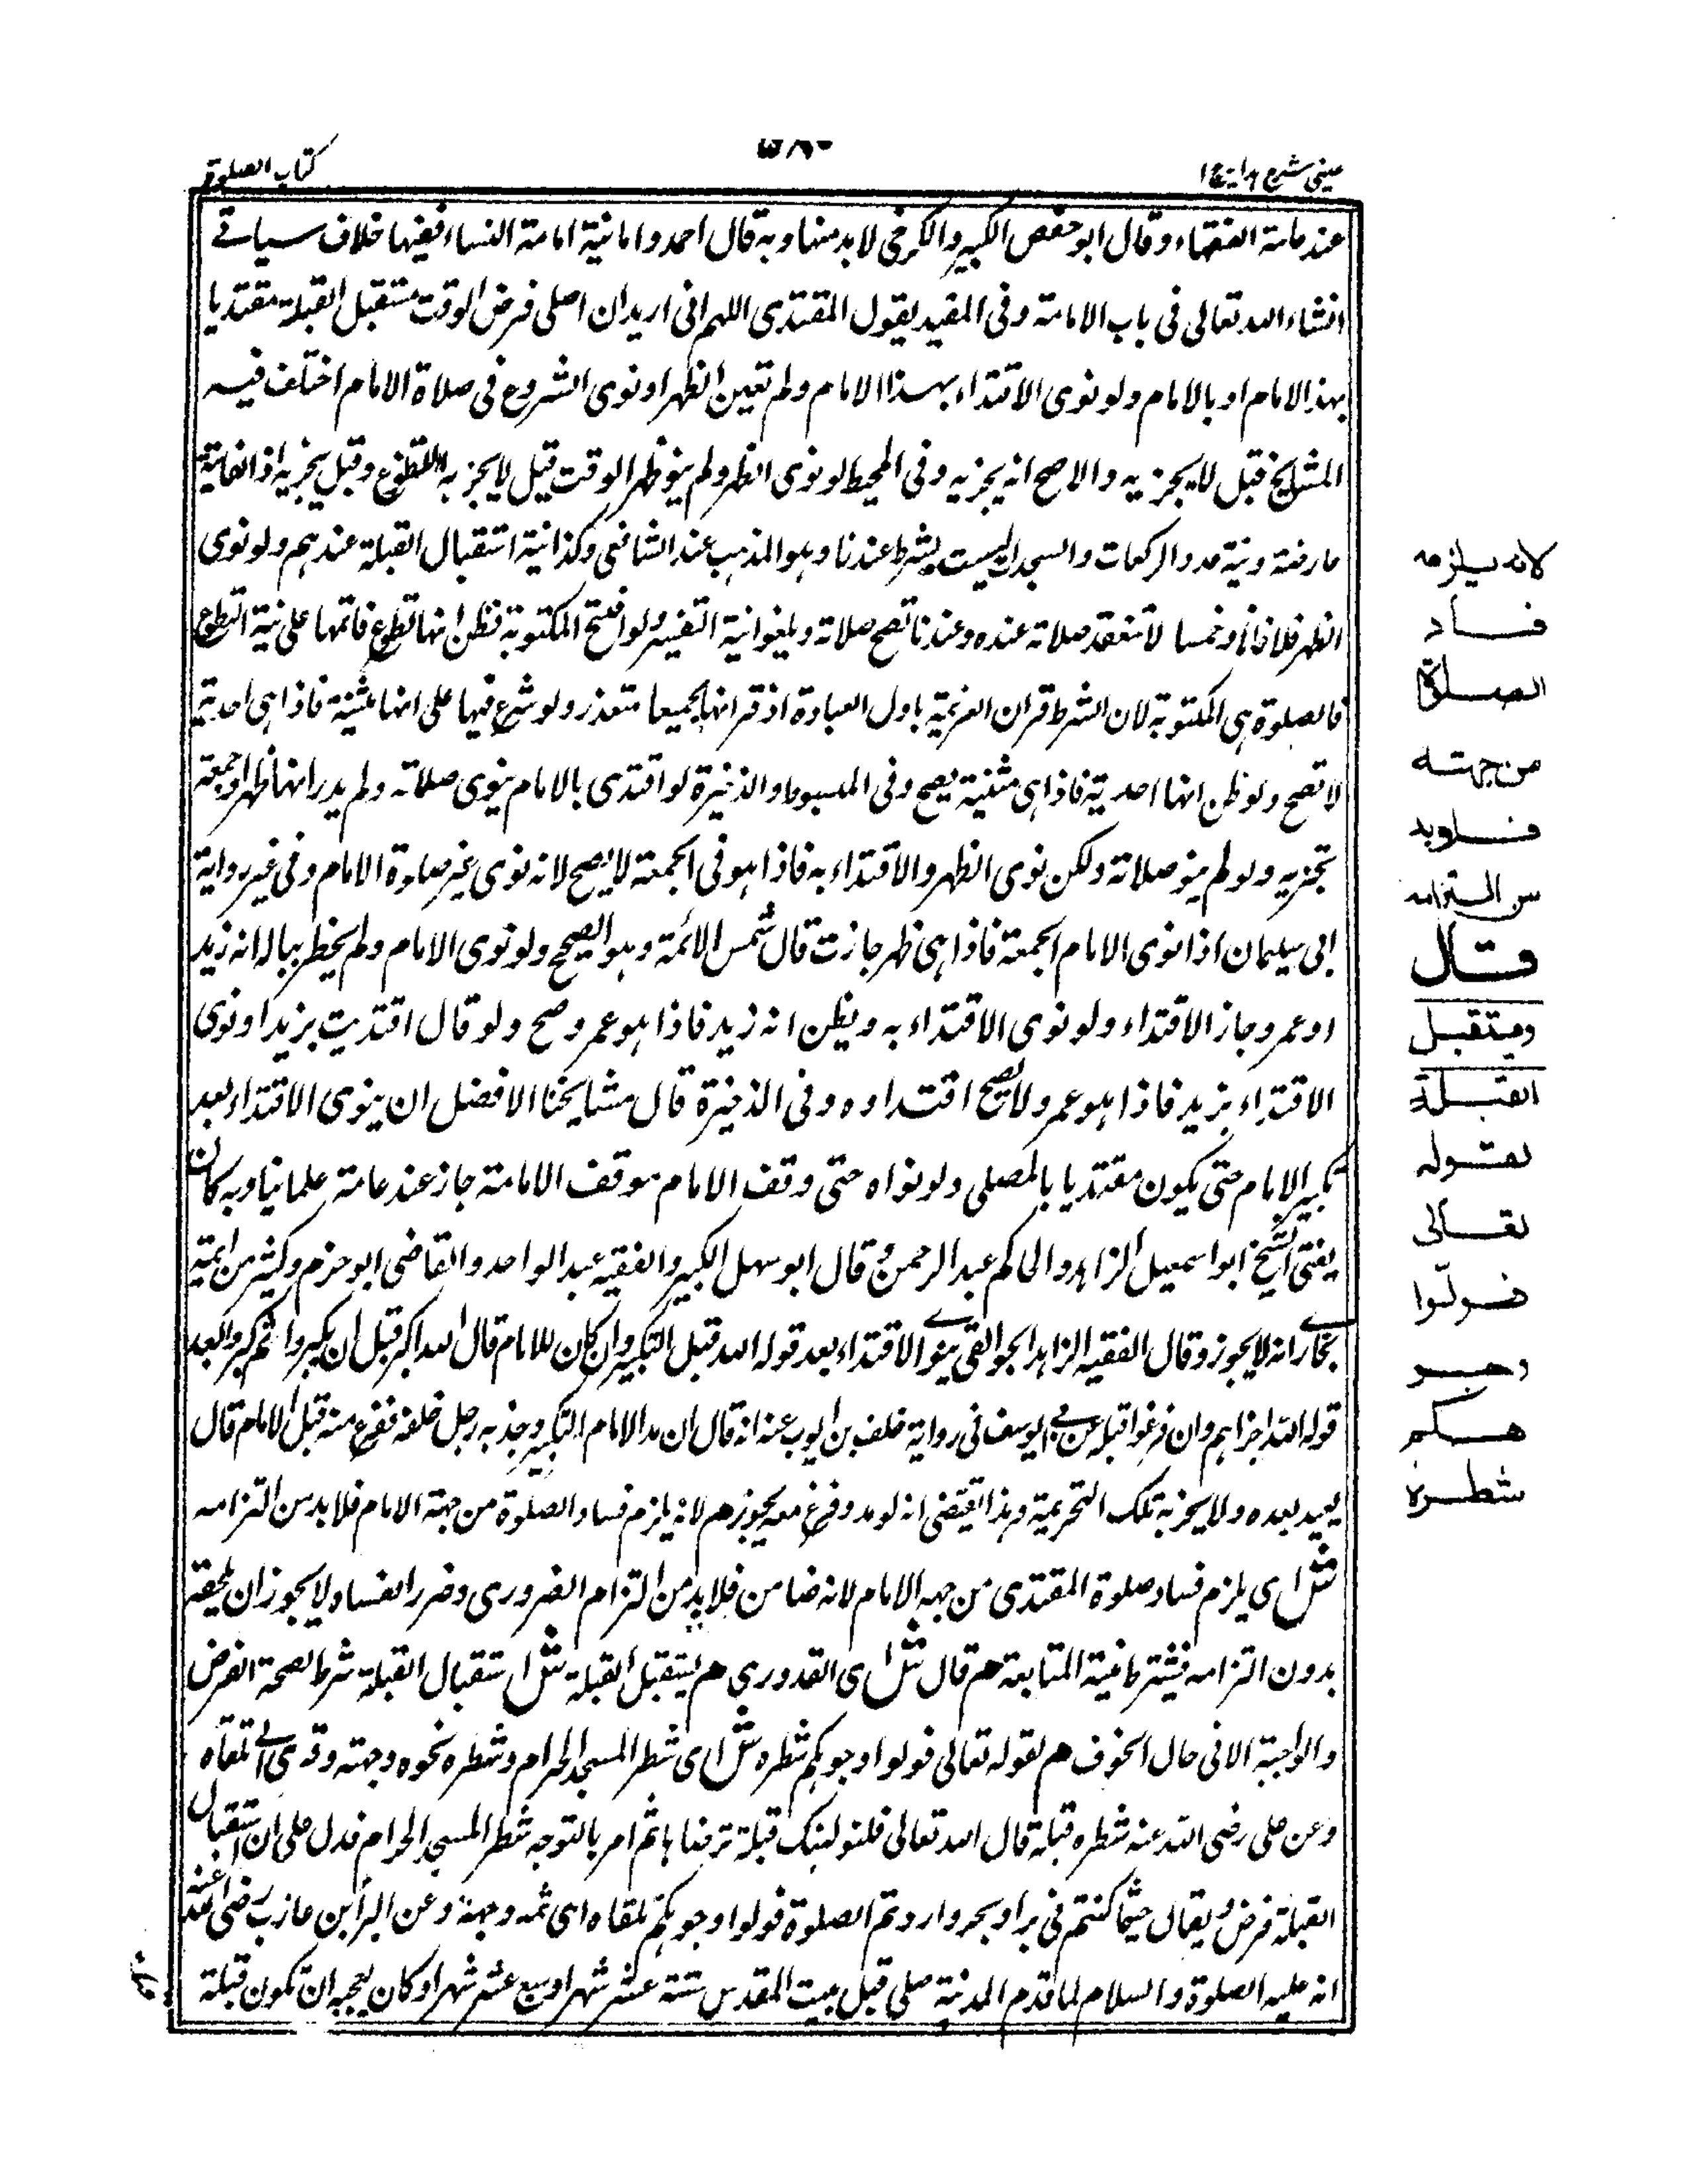 عینی شرح هدایة ج ا
کتاب الصلوة
عند عامة الفقهاء وقال ابو حفص الکبیر والکرخی لا بد منها وبه قال احمد واما نیة امامة النساء ففیها خلاف سیاتے
انشاء الله تعالی فی باب الامامة وفی المفید یقول المقتدی اللهم انی ارید ان اصلی فرض الوقت مستقبل القبلة مقتدیا
بهذا الامام او بالامام ولو نوی الاقتداء بهذا الامام ولم تعین الظهر او نوی الشروع فی صلاة الامام اختلف فیه
المشایخ قیل لا یجزیه والاصح انه یجزیه وفی المحیط لو نوی الظهر ولم ینو ظهر الوقت قیل لا یجزیه وقیل یجزیه اذ الفایتة
عارضة ونیة عدد الرکعات والسجدات لیست بشرط عندنا وهو المذهب عند الشافعی وکذا نیة استقبال القبلة عندهم ولو نوی
الظهر ثلاثا او خمسا لا تنعقد صلاته عنده وعندنا تصح صلاته ویلغو نیة التغییر ولو افتتح المکتوبة فظن انها تطوع فاتمها علی نیة التطوع
فالصلوة هی المکتوبة لان الشرط قران العزیمة باول العبادة اذ قرانها بجمیعها متعذر ولو شرع فیها علی انها مثنیة فاذا هی احدیة
لا تصح ولو ظن انها احدیة فاذا هی مثنیة یصح وفی المبسوط والذخیرة لو اقتدی بالامام ینوی صلاته ولم یدر انها ظهر او جمعة
تجزیه ولو لم ینو صلاته ولکن نوی الظهر والاقتداء به فاذا هو فی الجمعة لا یصح لانه نوی غیر صلوة الامام وفی غیر روایة
ابی سلیمان اذا نوی الامام الجمعة فاذا هی ظهر جازت قال شمس الائمة وهو الصحیح ولو نوی الامام ولم یخطر بباله انه زید
او عمرو جاز الاقتداء ولو نوی الاقتداء به ویظن انه زید فاذا هو عمرو صح ولو قال اقتدیت بزید او نوی
الاقتداء بزید فاذا هو عمرو لا یصح اقتداوه وفی الذخیرة قال مشایخنا الافضل ان ینوی الاقتداء بعد
تکبیر الامام حتی یکون مقتدیا بالمصلی ولو نواه حتی وقف الامام موقف الامامة جاز عند عامة علمائنا وبه کان
یفتی الشیخ ابو اسمعیل الزاهد والحاکم عبد الرحمن وقال ابو سهل الکبیر والفقیه عبد الواحد والقاضی ابو حزم وکثیر من ائمة
بخارا انه لا یجوز وقال الفقیه الزاهد الجوالقی ینوی الاقتداء بعد قوله الله قبل التکبیر وان کان للامام قال الله اکبر قبل ان یکبروا ثم کبروا بعد
قوله الله اجزاهم وان فرغوا قبله عن ابی یوسف فی روایة خلف بن ایوب عنه انه قال ان مد الامام التکبیر وجذبه رجل خلفه ففرغ منه قبل الامام قال
یعید بعده ولا یجزیه تلک التحریمة وهذا یقتضی انه لو مد وفرغ معه یجوز هم لانه یلزم فساد الصلوة من جهة الامام فلا بد من التزامه
ش ای یلزم فساد صلوة المقتدی من جهه الامام لانه ضامن فلا بد من التزام الضروری وضرر الفساد ولا یجوز ان یلحقه
بدون التزامه فیشترط نیة المتابعة هم قال ش ای القدوری هم یستقبل القبلة ش استقبال القبلة شرط لصحة الفرض
والواجبة الا فی حال الخوف هم لقوله تعالی فولوا وجوهکم شطره ش ای شطر المسجد الحرام وشطره نحوه وجهته وقدی ای تلقاه
وعن علی رضی الله عنه شطره قبلة قال الله تعالی فلنولینک قبلة ترضاها ثم امر بالتوجه شطر المسجد الحرام فدل علی ان استقبال
القبلة فرض ویقال حیثما کنتم فی بر او بحر واردتم الصلوة فولوا وجوهکم تلقاه ای ثمه وجهة وعن البرآ بن عازب رضی الله عنه
انه علیه الصلوة والسلام لما قدم المدینة صلی قبل بیت المقدس ستة عشر شهرا او سبع عشر شهرا وکان یعجبه ان تکون قبلة
لانه یلزمه
فساد
الصلاة
من جهته
فلابد
من التزامه
قال
ویستقبل
القبلة
لقوله
تعالی
فولّوا
وجو
هکم
شطره